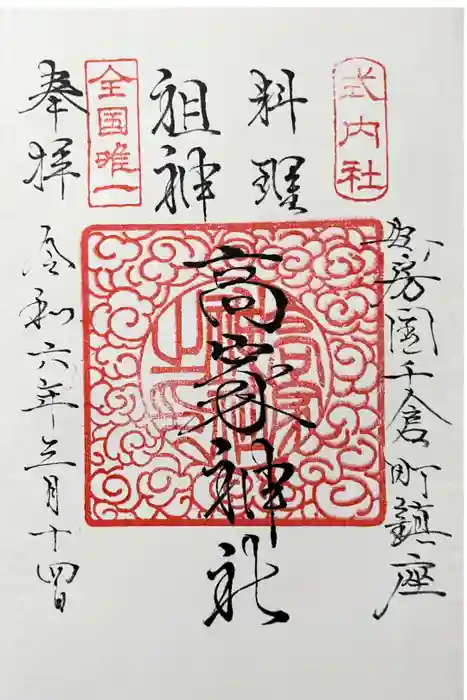 式内社
安房国千倉町鎮座
料理
祖神
高家神社
全国唯一
奉拝
令和六年三月十四日